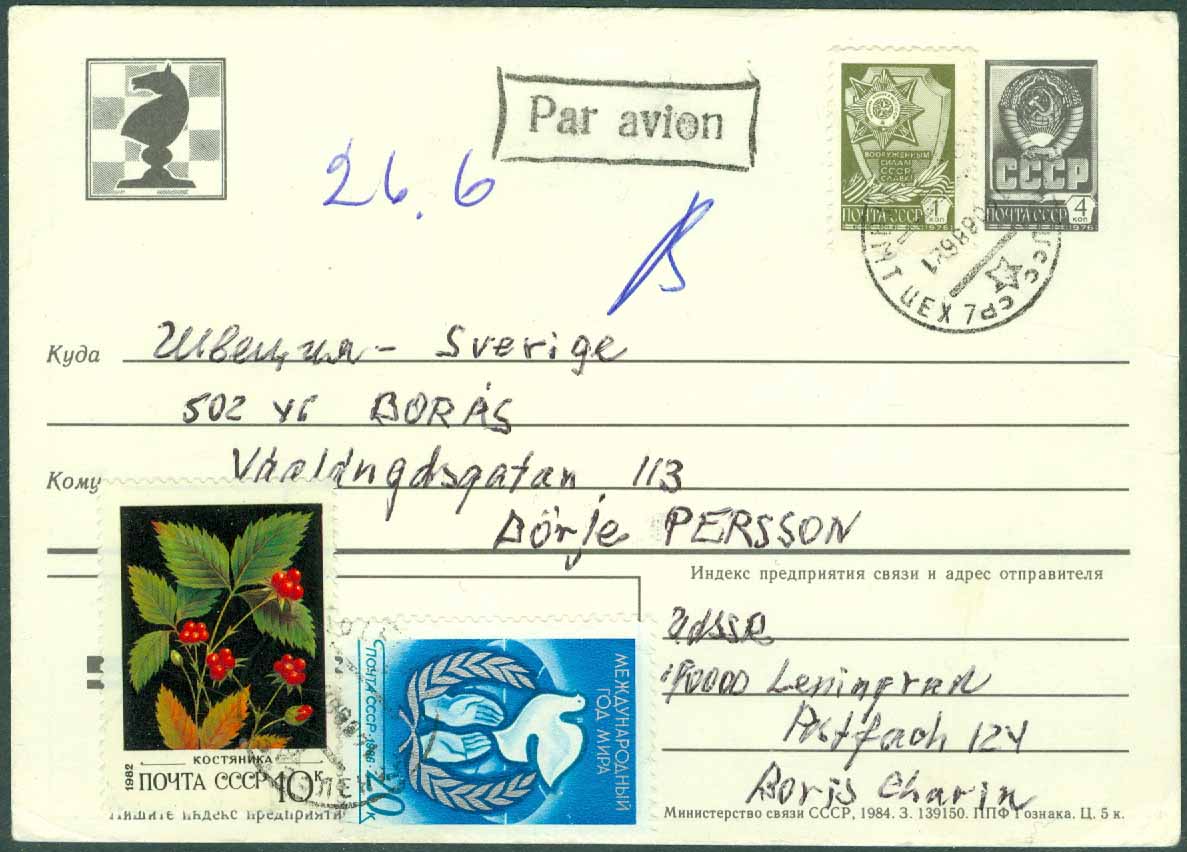 Par avion
26.6
ВООРУЖЕННЫМ
СИЛАМ
СССР
СЛАВА
ПОЧТА СССР 1 коп
1976
СССР
ПОЧТА СССР 4 коп
1976
ЦЕХ 7
Куда Швеция - Sverige
502 46 BORÅS
113
Кому
Börje PERSSON
Индекс предприятия связи и адрес отправителя
UdSSR
190000 Leningrad
Postfach 124
Boris Charin
МЕЖДУНАРОДНЫЙ
ГОД МИРА
ПОЧТА СССР · 1986 ·
20 к
КОСТЯНИКА
1982
ПОЧТА СССР 10 к
Пишите индекс предприяти
Министерство связи СССР, 1984. З. 139150. ППФ Гознака. Ц. 5 к.